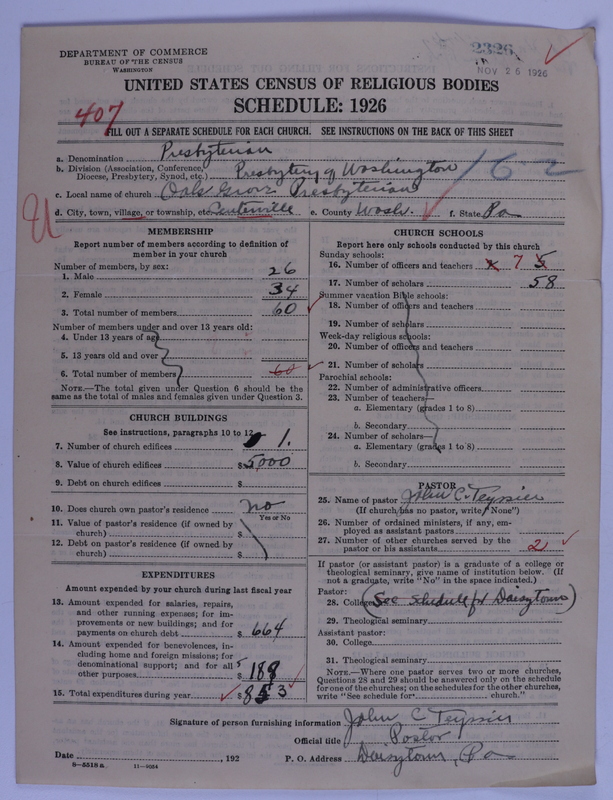 DEPARTMENT OF COMMERCE
BUREAU OF THE CENSUS
WASHINGTON
2326
NOV 26 1926
UNITED STATES CENSUS OF RELIGIOUS BODIES
SCHEDULE: 1926
407
FILL OUT A SEPARATE SCHEDULE FOR EACH CHURCH. SEE INSTRUCTIONS ON THE BACK OF THIS SHEET
a. Denomination Presbyterian
b. Division (Association, Conference, Diocese, Presbytery, Synod, etc.) Presbytery of Washington
162
c. Local name of church Oak Grove Presbyterian
d. City, town, village, or township, etc. Centerville e. County Wash. f. State Pa
MEMBERSHIP
Report number of members according to definition of
member in your church
Number of members, by sex:
1. Male 26
2. Female 34
3. Total number of members 60
Number of members under and over 13 years old:
4. Under 13 years of age
5. 13 years old and over
6. Total number of members 60
NOTE.—The total given under Question 6 should be the
same as the total of males and females given under Question 3.
CHURCH BUILDINGS
See instructions, paragraphs 10 to 12
7. Number of church edifices 1.
8. Value of church edifices $ 5000
9. Debt on church edifices $
10. Does church own pastor's residence no
Yes or No
11. Value of pastor's residence (if owned by
church) $
12. Debt on pastor's residence (if owned by
church) $
EXPENDITURES
Amount expended by your church during last fiscal year
13. Amount expended for salaries, repairs,
and other running expenses; for im-
provements or new buildings; and for
payments on church debt $ 664
14. Amount expended for benevolences, in-
cluding home and foreign missions; for
denominational support; and for all
other purposes $ 188
15. Total expenditures during year $ 853
CHURCH SCHOOLS
Report here only schools conducted by this church
Sunday schools:
16. Number of officers and teachers x 7 5
17. Number of scholars 58
Summer vacation Bible schools:
18. Number of officers and teachers
19. Number of scholars
Week-day religious schools:
20. Number of officers and teachers
21. Number of scholars
Parochial schools:
22. Number of administrative officers
23. Number of teachers—
a. Elementary (grades 1 to 8)
b. Secondary
24. Number of scholars—
a. Elementary (grades 1 to 8)
b. Secondary
PASTOR
25. Name of pastor John C. Teyssier
(If church has no pastor, write "None")
26. Number of ordained ministers, if any, em-
ployed as assistant pastors
27. Number of other churches served by the
pastor or his assistants 2
If pastor (or assistant pastor) is a graduate of a college or
theological seminary, give name of institution below. (If
not a graduate, write "No" in the space indicated.)
Pastor:
28. College (See schedule for Daisytown)
29. Theological seminary
Assistant pastor:
30. College
31. Theological seminary
NOTE.—Where one pastor serves two or more churches,
Questions 28 and 29 should be answered only on the schedule
for one of the churches; on the schedules for the other churches,
write "See schedule for church."
Signature of person furnishing information John C Teyssier
Official title Pastor
Date , 192 P. O. Address Daisytown, Pa
8-5518a 11-9034